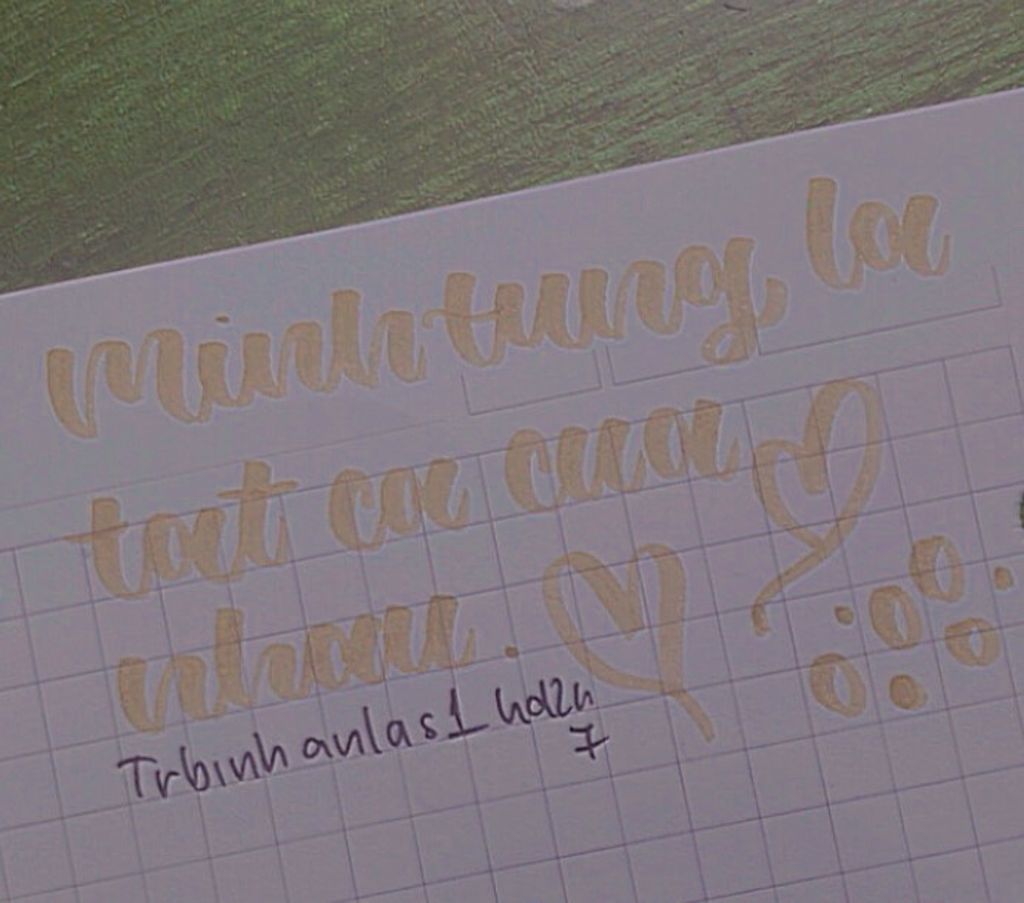 minh tung la
tat ca cua
nhau.
Trbinh anlas1 hd2h
7